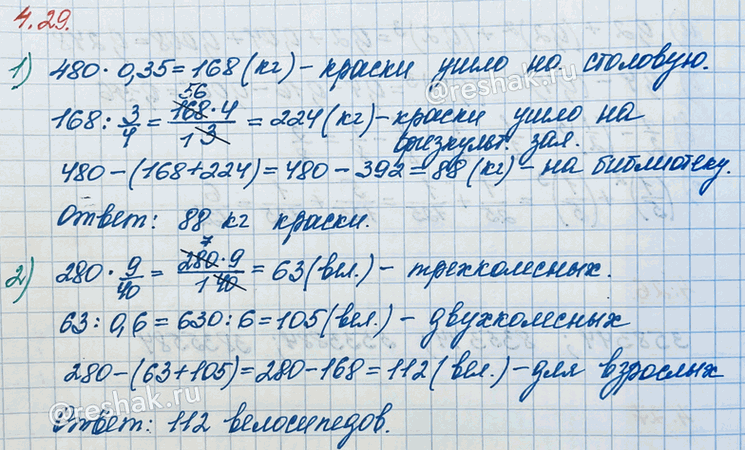 4.29.
1) 480 · 0,35 = 168 (кг) – краски ушло на столовую.
168 : 3/4 = 168 · 4 / 3 = 224 (кг) – краски ушло на физкульт. зал.
56
1
480 – (168 + 224) = 480 – 392 = 88 (кг) – на библиотеку.
Ответ: 88 кг краски.
2) 280 · 9/40 = 280 · 9 / 40 = 63 (вел.) – трехколесных.
7
1
63 : 0,6 = 630 : 6 = 105 (вел.) – двухколесных
280 – (63 + 105) = 280 – 168 = 112 (вел.) – для взрослых
Ответ: 112 велосипедов.
©reshak.ru
©reshak.ru
©reshak.ru